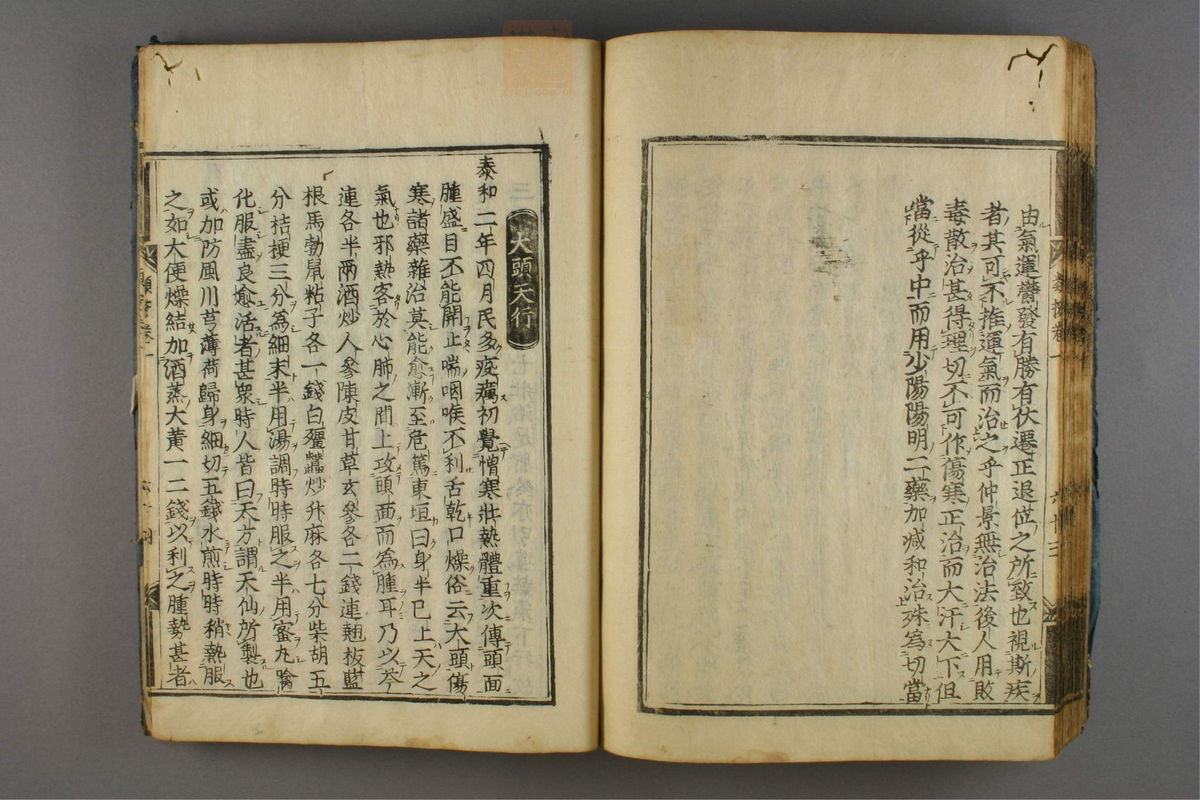 由氣運欝發有勝有伏遷正退位之所致也視斯疾
者其可不推運氣而治之乎仲景無治法後人用敗
毒散治甚得理切不可作傷寒正治而大汗大下但
當從乎中而用少陽陽明二藥加减和治殊為切當
大頭天行
泰和二年四月民多疫癘初覺憎寒壯熱體重次傳頭面
腫盛目不能開上喘咽喉不利舌乾口燥俗云大頭傷
寒諸藥雜治莫能愈漸至危篤東垣曰身半已上天之
氣也邪熱客於心肺之間上攻頭面而為腫耳乃以芩
連各半兩酒炒人參陳皮甘草玄參各二錢連翹板藍
根馬勃鼠粘子各一錢白殭蠶炒升麻各七分柴胡五
分桔梗三分為細末半用湯調時時服之半用蜜丸噙
化服盡良愈活者甚衆時人皆曰天方謂天仙所製也
或加防風川芎薄荷歸身細切五錢水煎時時稍熱服
之如大便燥結加酒蒸大黄一二錢以利之腫勢甚者